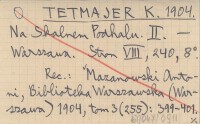 TETMAJER K. 1904.
Na Skalnem Podhalu. II. —
Warszawa. Stron VIII 240, 8°
Rec.: Mazanowski Anto-
ni, Biblioteka Warszawska (War-
szawa) 1904, tom 3 (255): 399-401.